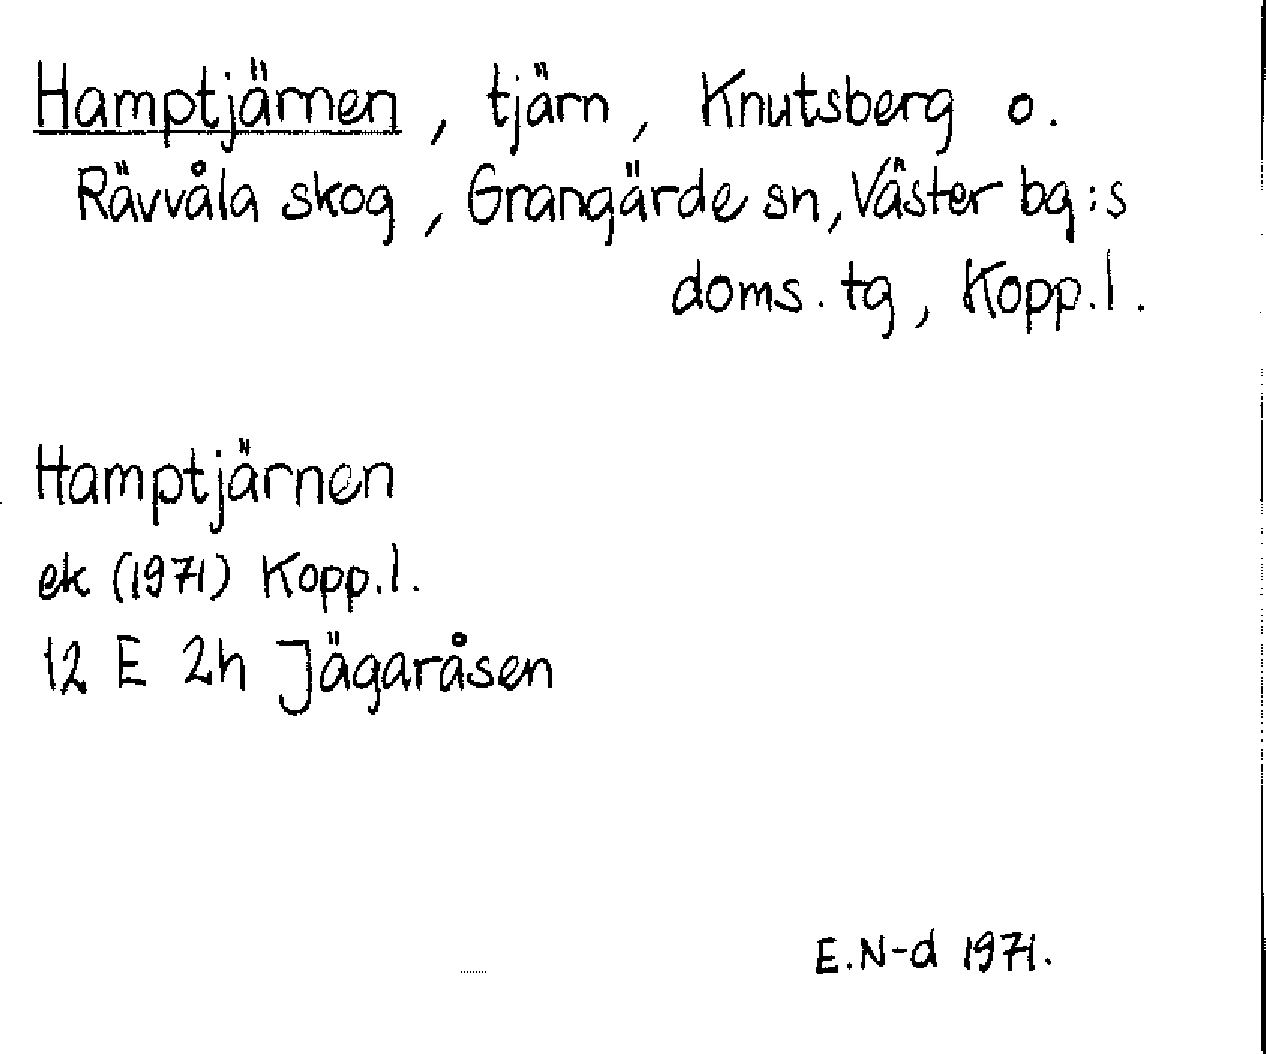 Hamptjärnen, tjärn, Knutsberg o.
Rävvåla skog, Grangärde sn, Väster bg:s
doms. tg, Kopp.l.
Hamptjärnen
ek (1971) Kopp.l.
12 E 2h Jägaråsen
E.N-d 1971.